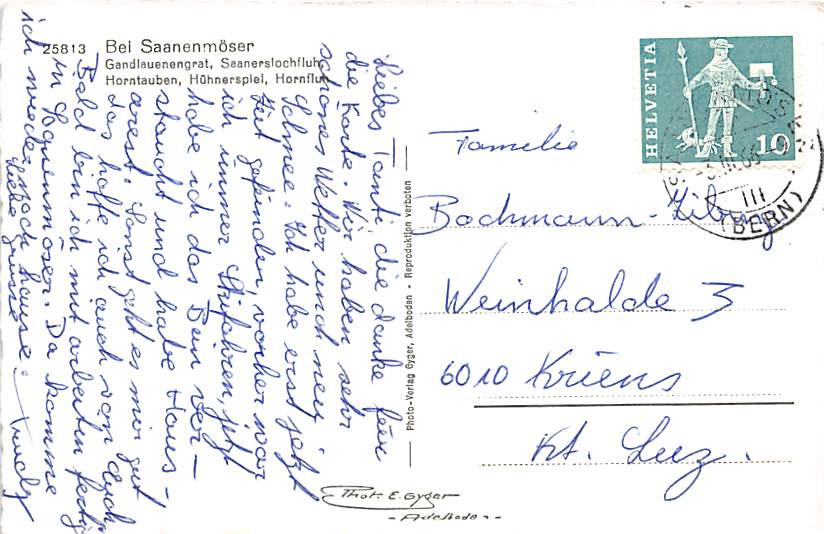 25813 Bei Saanenmöser
Gandlauenengrat, Saanerslochfluh
Horntauben, Hühnerspiel, Hornfluh
Liebes Tanti, die danke für
die Karte. Wir haben sehr
schönes Wetter und neu
Schnee. Ich habe erst jetzt
Zeit gefunden, vorher war
ich immer Skifahren, jetzt
habe ich das Bein ver-
staucht und habe Haus-
arest. Sonst geht es mir gut
das hoffe ich auch von Euch
Bald bin ich mit arbeiten fertig
in Saanenmöser. Da komme
ich wieder nach hause.
liebe grüsse
Photo-Verlag Gyger, Adelboden - Reproduktion verboten
HELVETIA
10
III
(BERN)
Familie
Bachmann-Zibung
Weinhalde 3
6010 Kriens
Kt. Luz.
Phot. E. Gyger
- Adelboden -